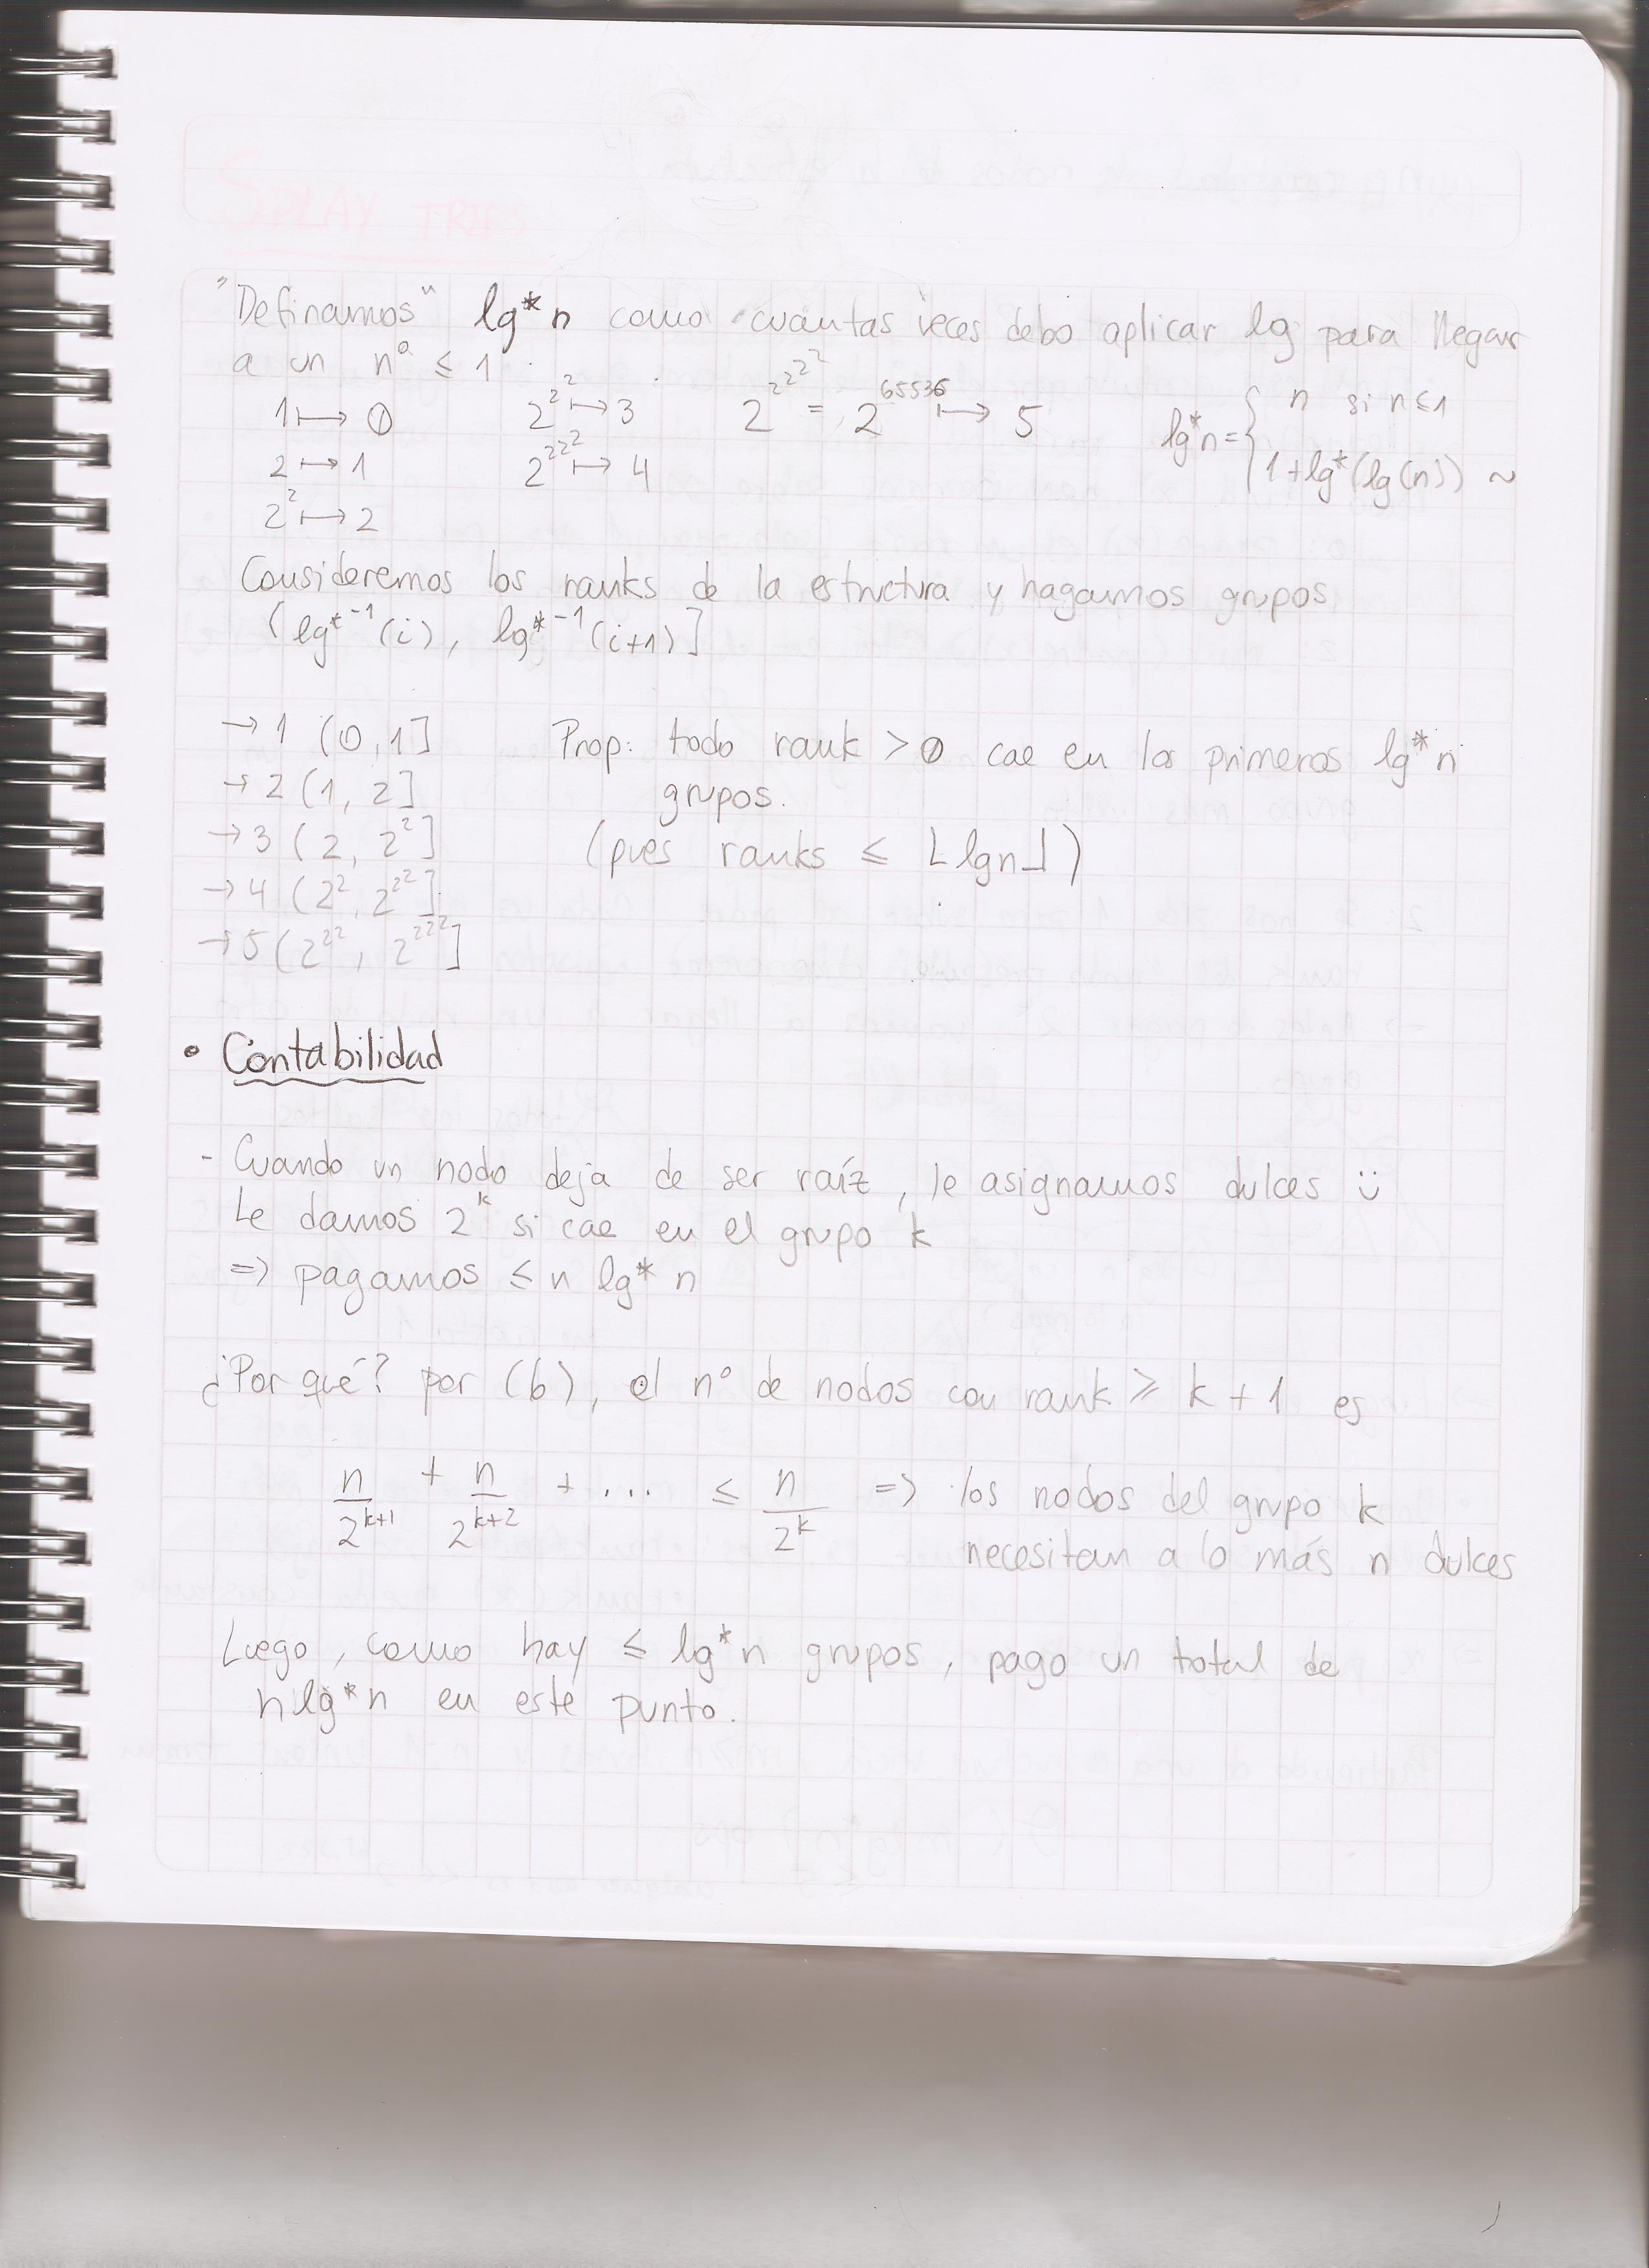 SPLAY TREES
"Definamos" lg*n como cuántas veces debo aplicar lg para llegar
a un nº ≤ 1
1 ↦ 0
2 ↦ 1
2^2 ↦ 2
2^2^2 ↦ 3
2^2^2^2 ↦ 4
2^2^2^2^2 = 2^65536 ↦ 5
lg*n = { n si n≤1
1+lg*(lg(n)) ~
Consideremos los ranks de la estructura y hagamos grupos
(lg*^-1(i), lg*^-1(i+1)]
→ 1 (0,1]
→ 2 (1, 2]
→ 3 (2, 2^2]
→ 4 (2^2, 2^2^2]
→ 5 (2^2^2, 2^2^2^2]
Prop: todo rank > 0 cae en los primeros lg*n
grupos.
(pues ranks ≤ ⌊lgn⌋)
• Contabilidad
- Cuando un nodo deja de ser raíz, le asignamos dulces :)
Le damos 2^k si cae en el grupo k
=> pagamos ≤ n lg* n
¿Por qué? por (b), el nº de nodos con rank ≥ k + 1 es
n/2^k+1 + n/2^k+2 + ... ≤ n/2^k => los nodos del grupo k
necesitan a lo más n dulces
Luego, como hay ≤ lg*n grupos, pago un total de
n lg*n en este punto.